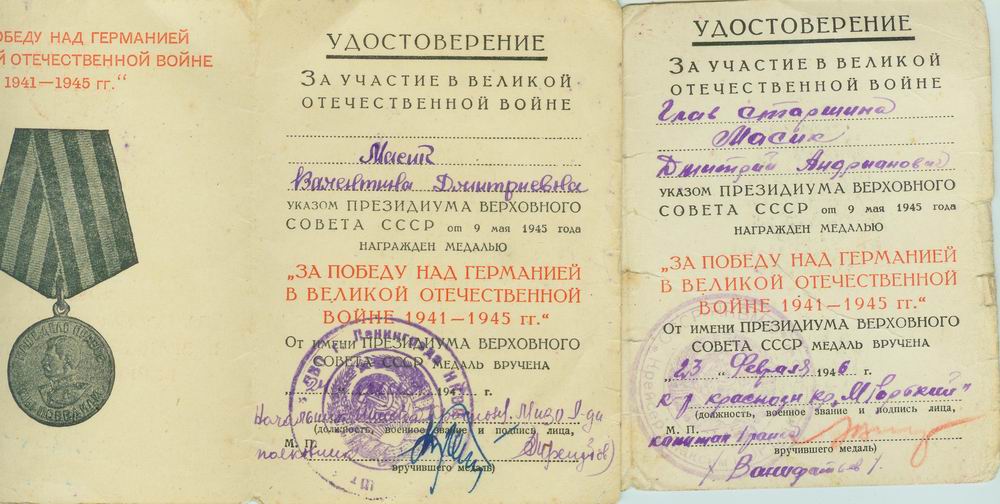 ОБЕДУ НАД ГЕРМАНИЕЙ
Й ОТЕЧЕСТВЕННОЙ ВОЙНЕ
1941—1945 гг.“
УДОСТОВЕРЕНИЕ
ЗА УЧАСТИЕ В ВЕЛИКОЙ
ОТЕЧЕСТВЕННОЙ ВОЙНЕ
Масик
Валентина Дмитриевна
УКАЗОМ ПРЕЗИДИУМА ВЕРХОВНОГО
СОВЕТА СССР от 9 мая 1945 года
НАГРАЖДЕН МЕДАЛЬЮ
„ЗА ПОБЕДУ НАД ГЕРМАНИЕЙ
В ВЕЛИКОЙ ОТЕЧЕСТВЕННОЙ
ВОЙНЕ 1941—1945 гг.“
От имени ПРЕЗИДИУМА ВЕРХОВНОГО
СОВЕТА СССР МЕДАЛЬ ВРУЧЕНА
194 г.
(должность, военное звание и подпись лица,
М. П.
полковник
вручившего медаль)
УДОСТОВЕРЕНИЕ
ЗА УЧАСТИЕ В ВЕЛИКОЙ
ОТЕЧЕСТВЕННОЙ ВОЙНЕ
Глав старшина
Масик
Дмитрий Андрианович
УКАЗОМ ПРЕЗИДИУМА ВЕРХОВНОГО
СОВЕТА СССР от 9 мая 1945 года
НАГРАЖДЕН МЕДАЛЬЮ
„ЗА ПОБЕДУ НАД ГЕРМАНИЕЙ
В ВЕЛИКОЙ ОТЕЧЕСТВЕННОЙ
ВОЙНЕ 1941—1945 гг.“
От имени ПРЕЗИДИУМА ВЕРХОВНОГО
СОВЕТА СССР МЕДАЛЬ ВРУЧЕНА
„23 “ Февраля 1946 г.
к-р краснозн кр. „М Горький"
(должность, военное звание и подпись лица,
М. П.
капитан 1 ранга
вручившего медаль)